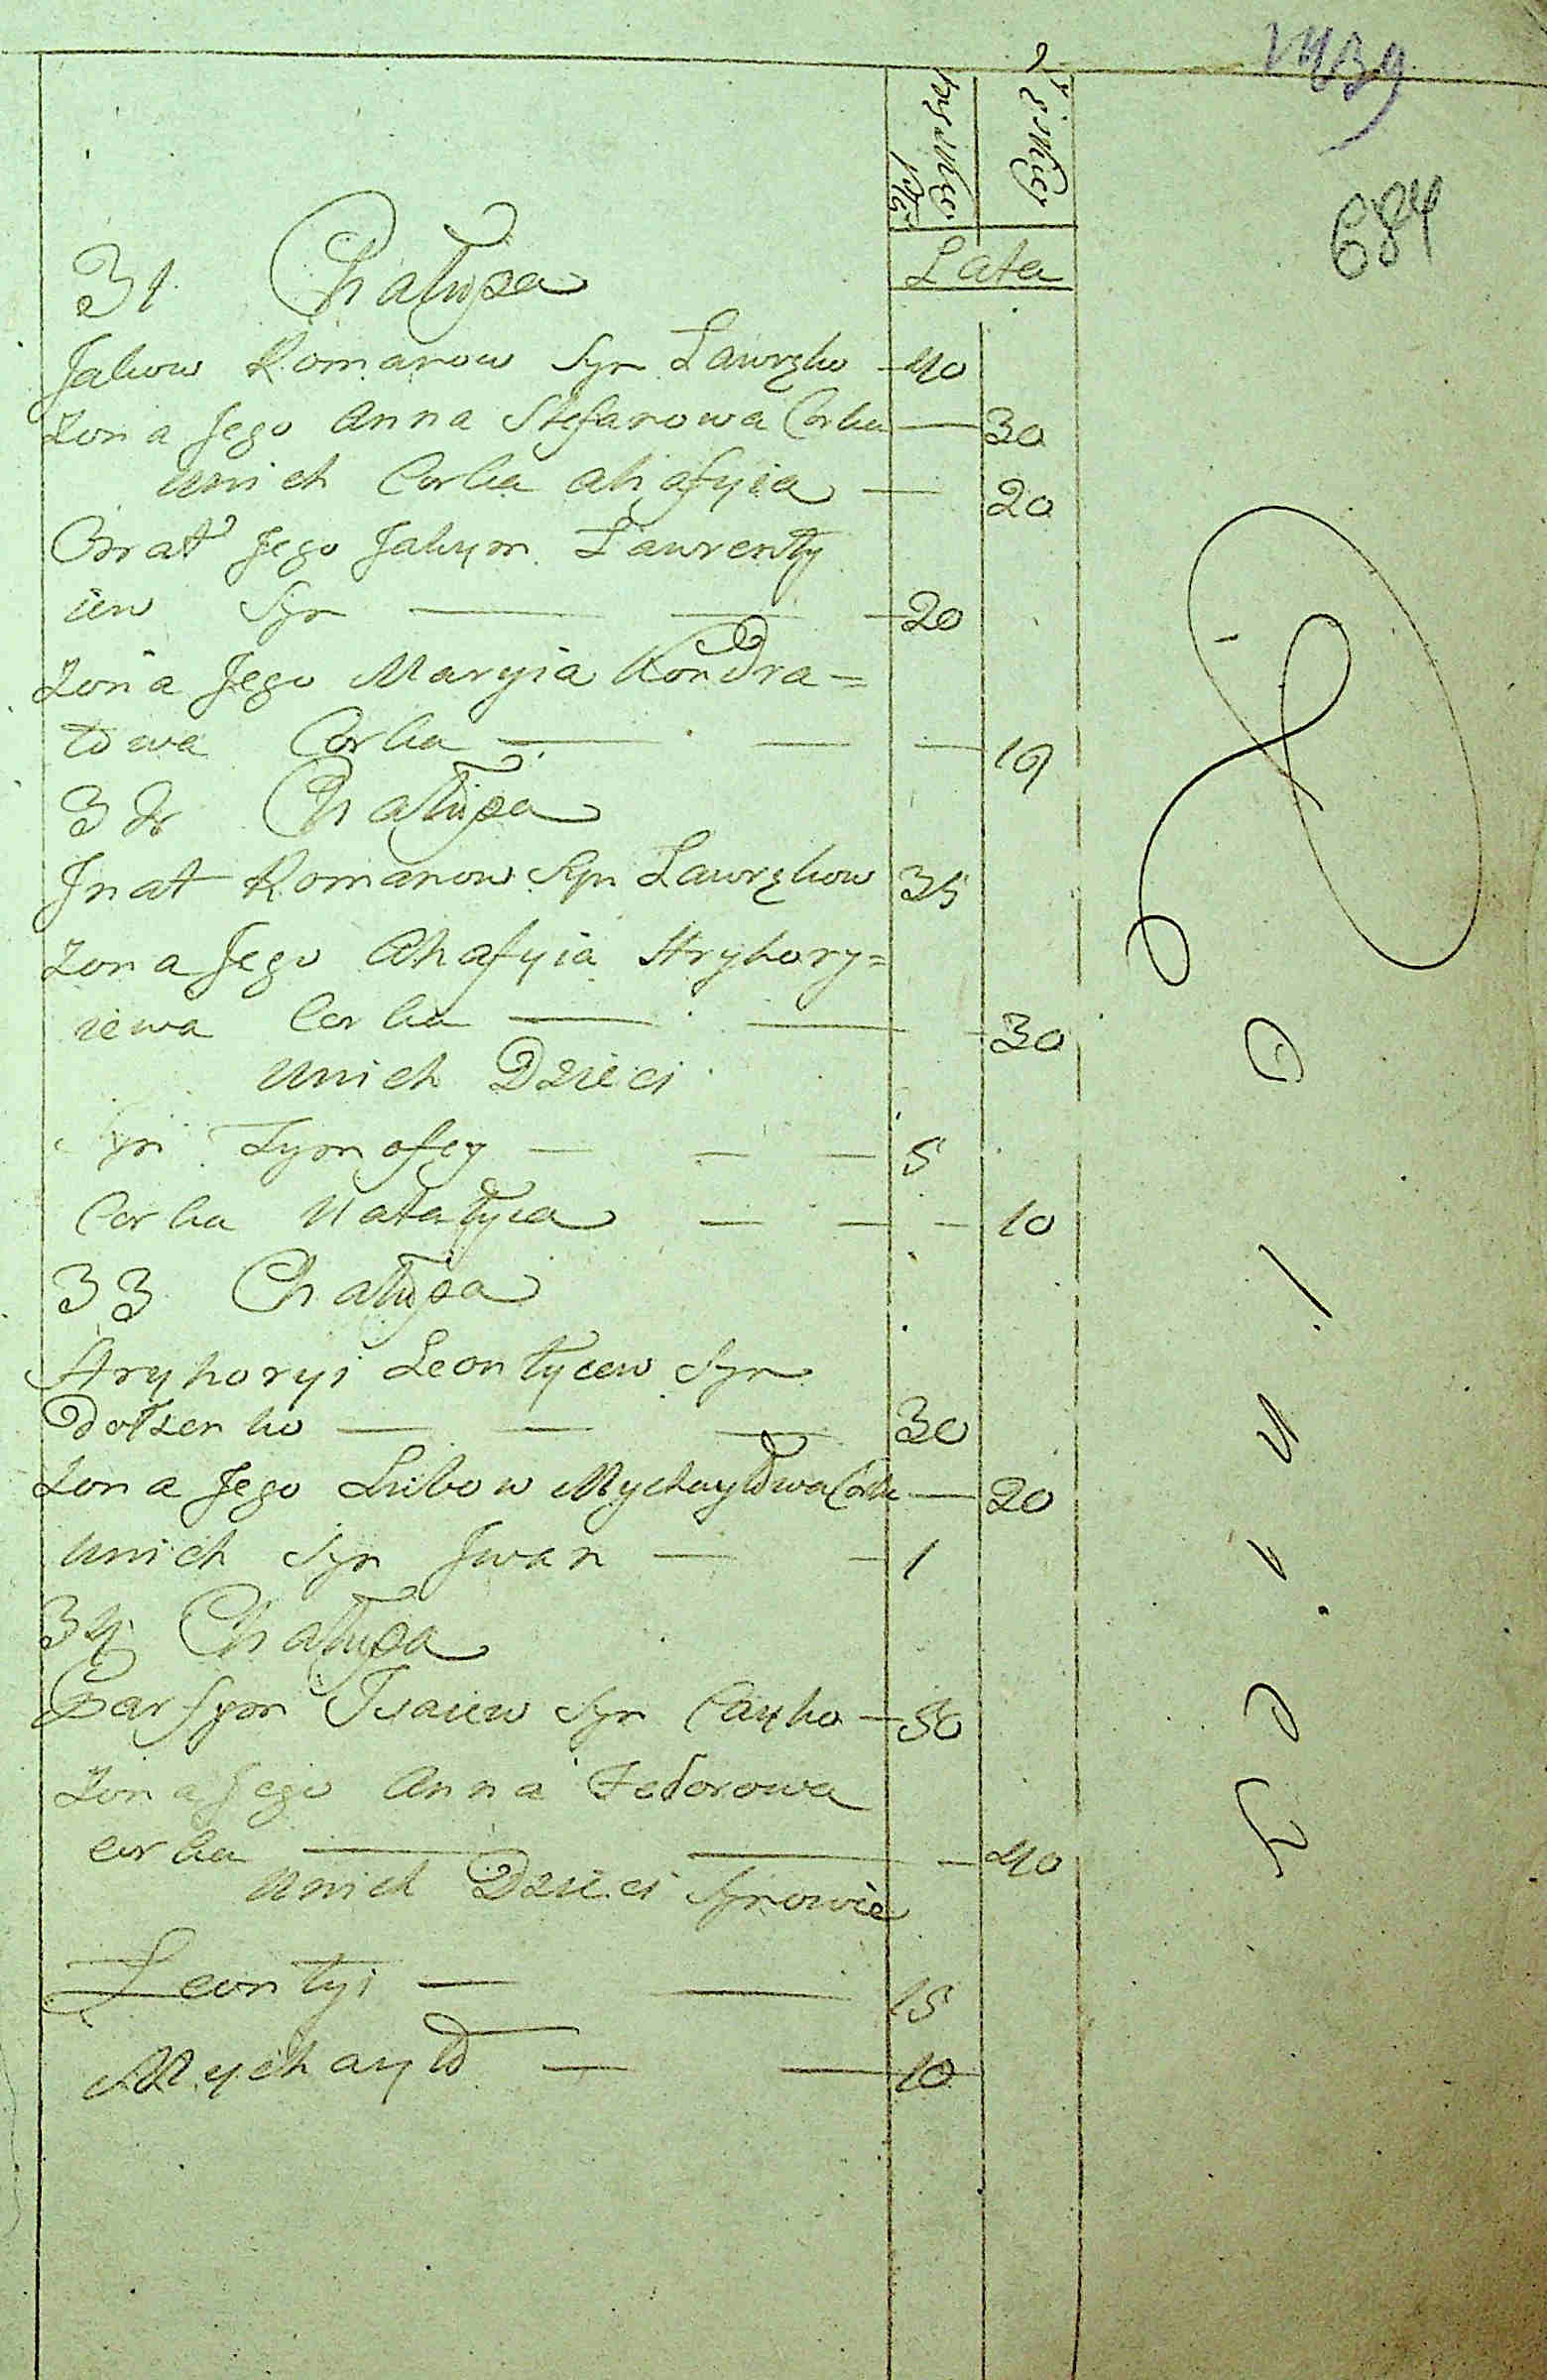 684
Lata
31 Chałupa
Jakow Romanow Syn Ławręko 40
Zona Jego Anna Stefanowa Corka 30
unich Corka Ahafyia 20
Brat Jego Jakym Ławrenty
iew Syn 20
Zona Jego Maryia Kondra=
towa Corka 19
32 Chałupa
Jnat Romanow Syn Ławrękow 35
Zona Jego Ahafyia Hryhory=
iewa Corka 30
unich Dzieci
Syn Tymofey 5
Corka Natalyia 10
33 Chałupa
Hryhoryi Leontyiew Syn
Dotzenko 30
Zona Jego Lubow Mychayłowa Corka 20
unich Syn Jwan 1
34 Chałupa
Parfym Jsaiew Syn 50
Zona Jego Anna Fedorowa
corka 40
unich Dzieci Synowie
Leontyi 15
Mychayło 10